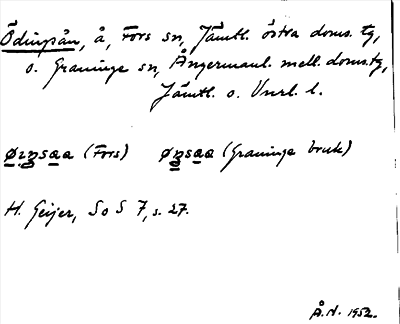 Ödingsån, å, Fors sn, Jämtl. östra doms. tg,
o. Graninge sn, Ångermanl. mell. doms. tg,
Jämtl. o. Vnrl. l.
(Fors) (Graninge bruk)
H. Geijer, SoS 7, s. 27.
Å.N. 1952.